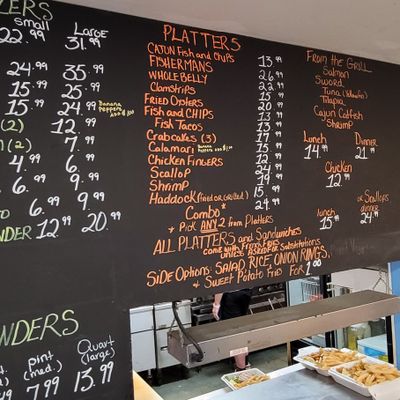 LERS
small Large
22.99 31.99
24.99 35.99
15.99 25.99
15.99 24.99 Banana Peppers ADD $1.00
(2) 12.99
(2) 7.99
4.99 7.99
6.99 9.99
6.99 9.99
NDER 12.99 20.99
NDERS
pint (med.) Quart (large)
7.99 13.99
PLATTERS
CAJUN Fish and Chips 13.99
FISHERMANS 26.99
WHOLE BELLY 22.99
Clamstrips 15.99
FRIED Oysters 20.99
Fish and CHIPS 13.99
Fish Tacos 13.99
Crabcakes (3) 17.99
Calamari
Chicken Fingers 12.99
Scallop 24.99
Shrimp 19.99
Haddock (fried or Grilled) 15.99
Combo 24.99
Pick ANY 2 from Platters
ALL PLATTERS and Sandwiches
come with French Fries
SIDE Options: SALAD, RICE, ONION RINGS,
& SWEET Potato FRIED For 1.00
From the GRILL
Salmon
Sword
Tuna
Tilapia
Cajun Catfish
Shrimp
Lunch Dinner
14.99 21.99
Chicken
12.99
or Scallops
lunch dinner
15.99 24.99